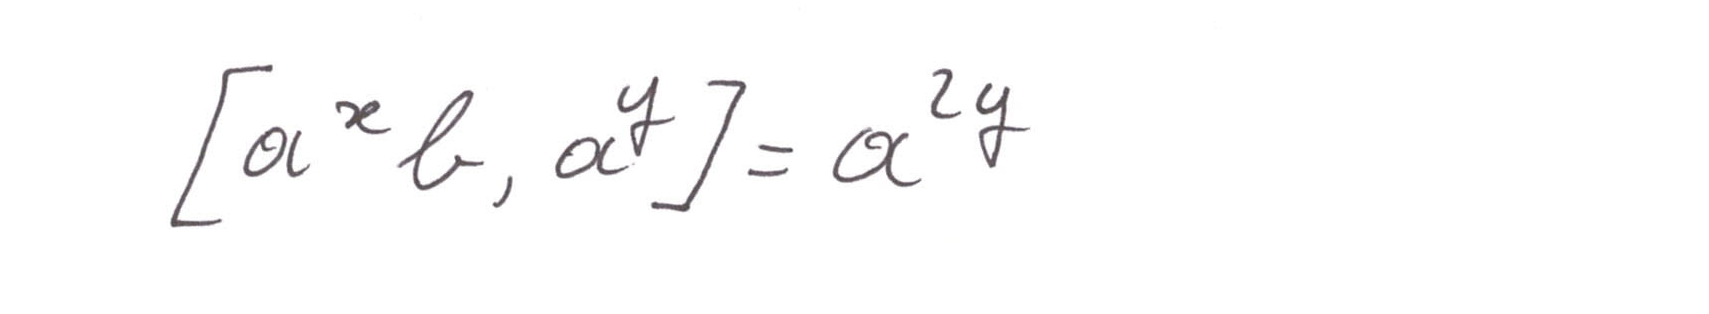 [a^x b, a^y] = a^{2y}